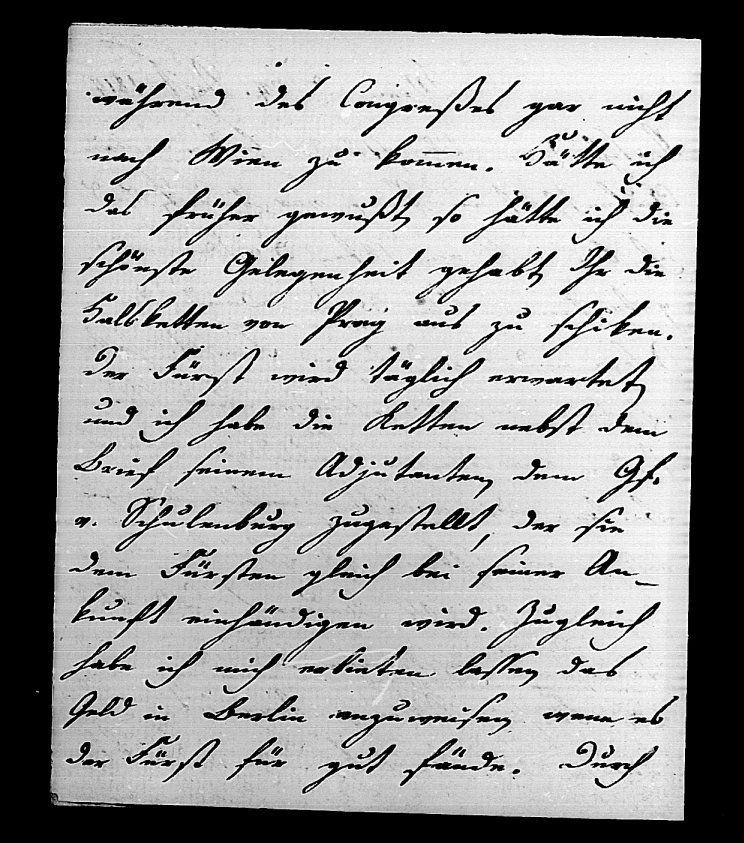 während des Congreßes gar nicht
nach Wien zu kommen. Hätte ich
das früher gewußt, so hätte ich die
schönste Gelegenheit gehabt, Ihr die
Halsketten von Prag aus zu schiken.
Der Fürst wird täglich erwartet,
und ich habe die Ketten nebst dem
Brief seinem Adjutanten, dem Gf.
v. Schulenburg zugestellt, der sie
dem Fürsten gleich bei seiner An-
kunft einhändigen wird. Zugleich
habe ich mich erbieten lassen, das
Geld in Berlin anzuweisen, wenn es
der Fürst für gut fände. Durch